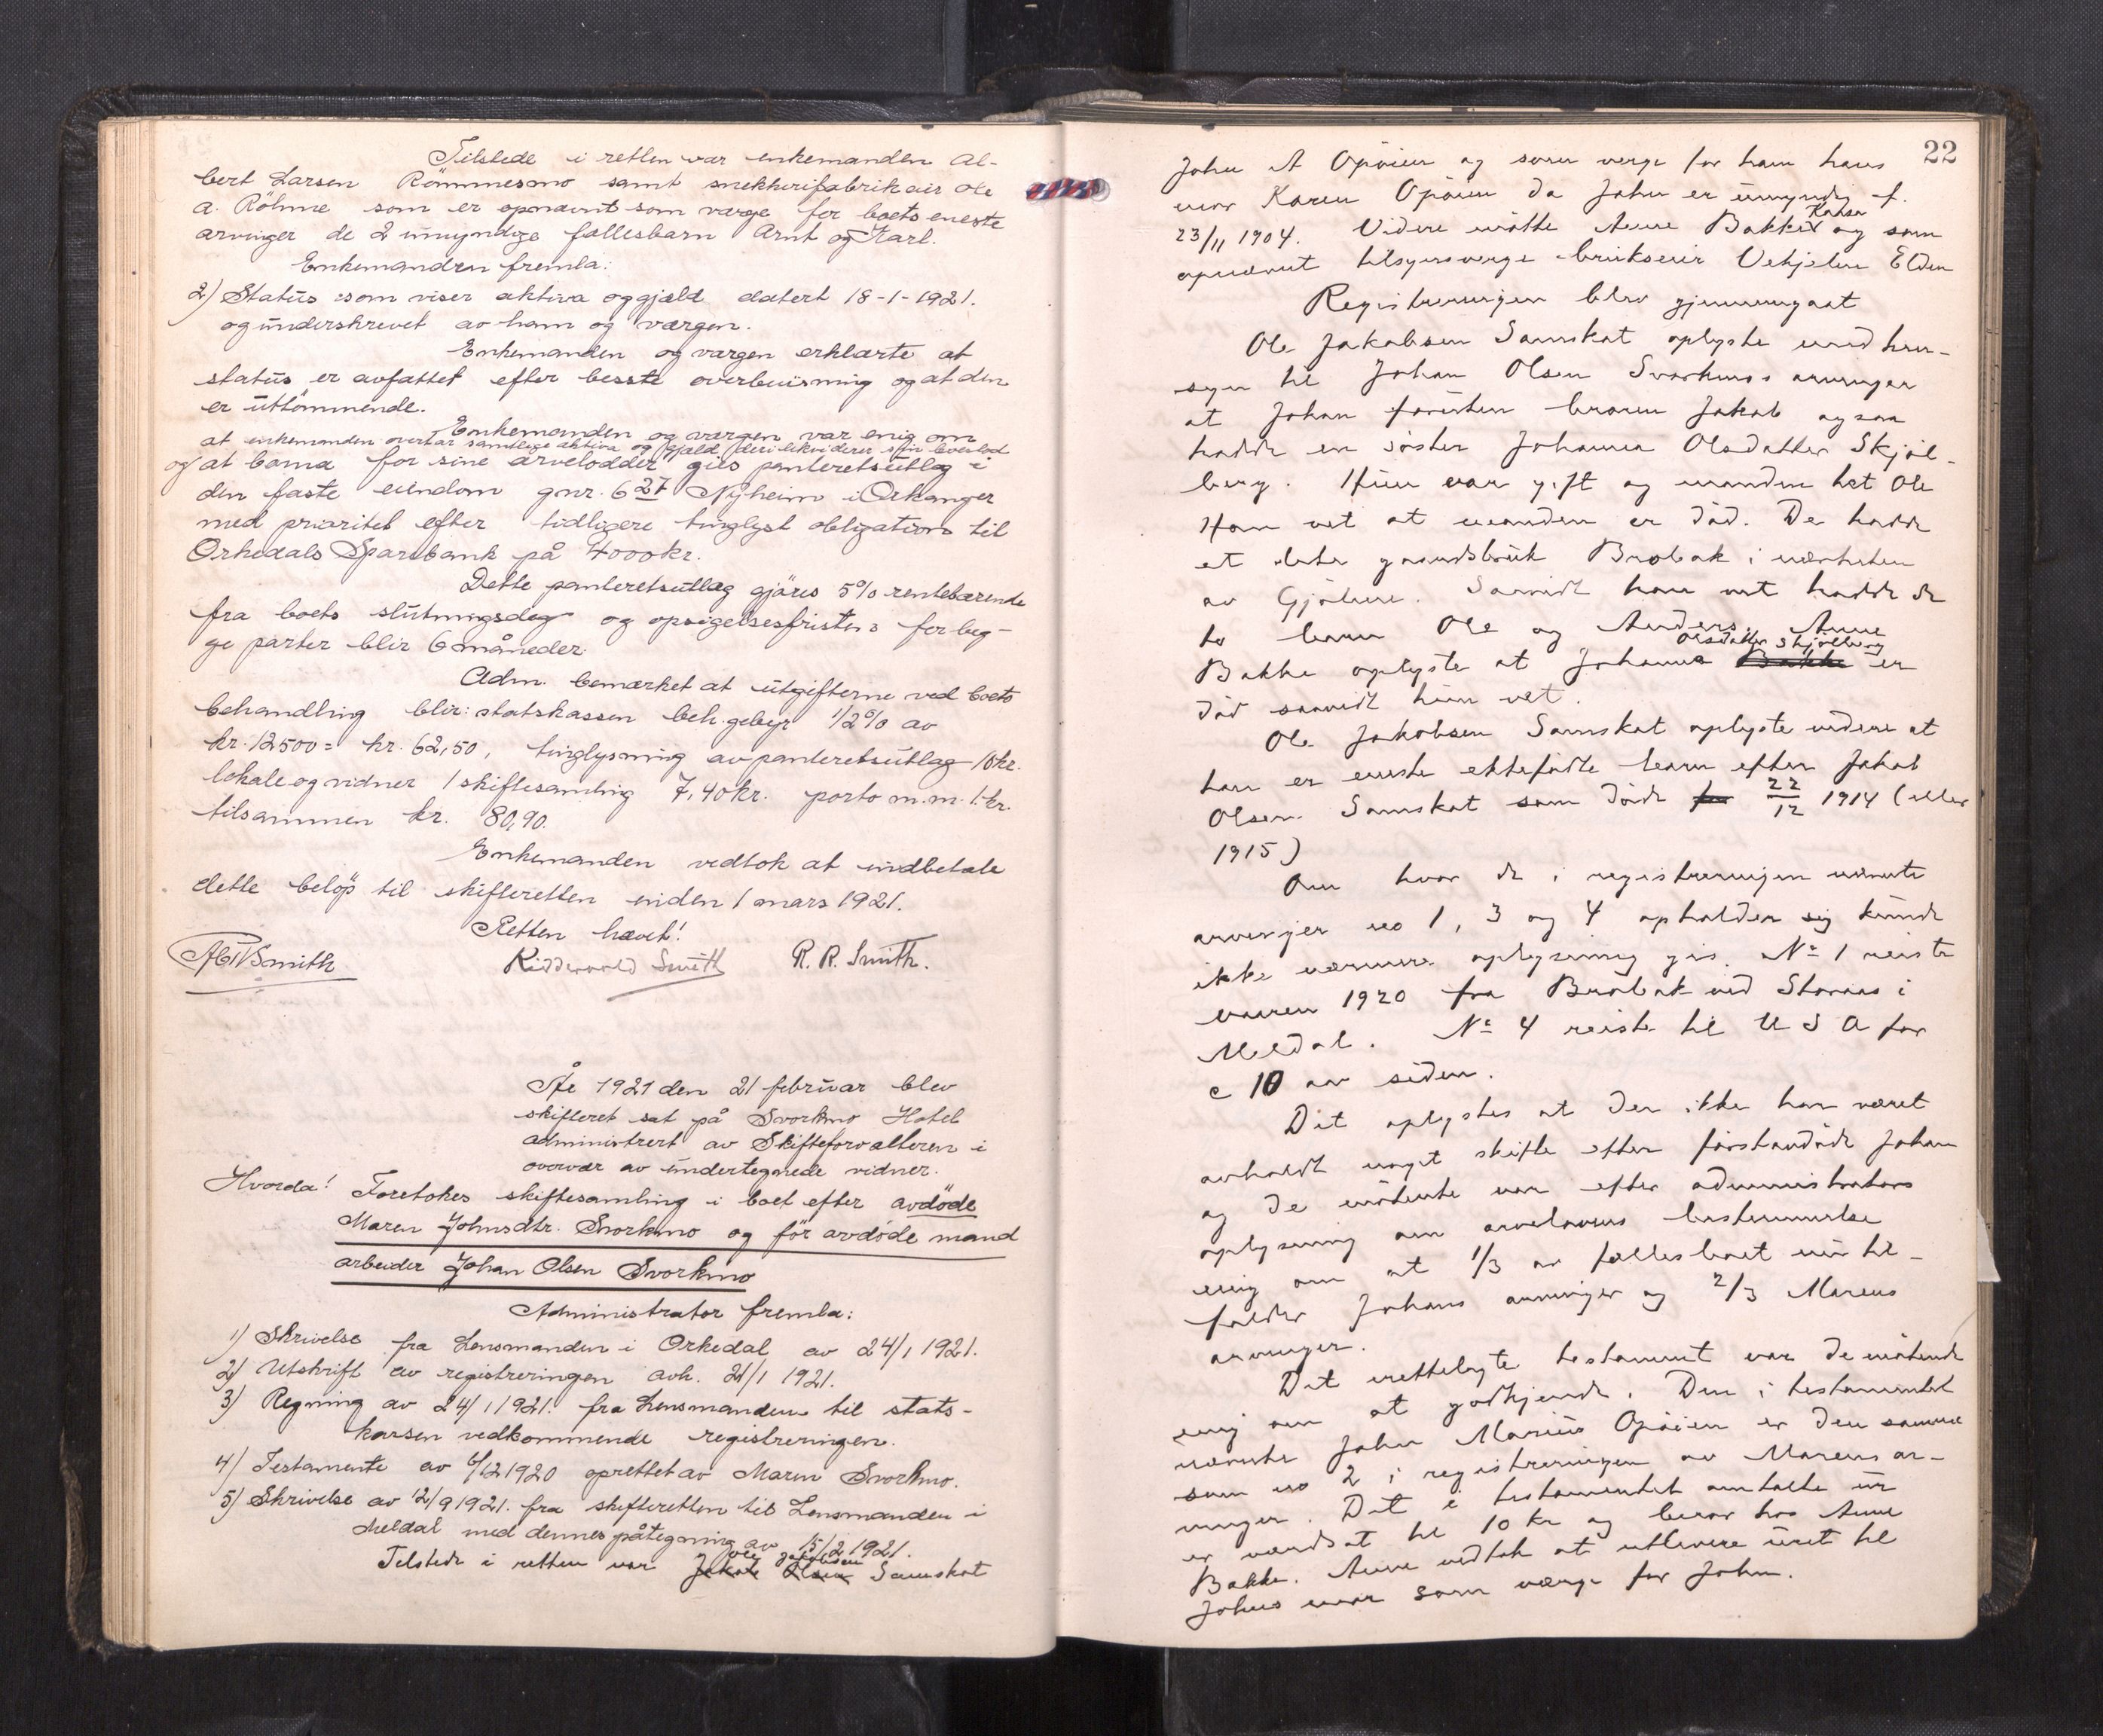 Tilstede i retten var enkemanden Al-
bert Larsen Römmesmo samt snekkerifabrikeier Ole
A. Röhme som er opnævnt som værge for boets eneste
arvinger de 2 umyndige fællesbarn Arnt og Karl.
Enkemanden fremla:
2) Status som viser aktiva og gjæld datert 18-1-1921.
og underskrevet av ham og værgen.
Enkemanden og værgen erklærte at
status er avfattet efter besste overbevisning og at den
er uttömmende.
Enkemanden og værgen var enig om
at enkemanden overtar samtlige aktiva og gjæld
og at barna for sine arvelodder gis panteretsutlæg i
den faste eiendom gnr. 6 27 Nyheim i Orkanger
med prioritet efter tidligere tinglyst obligation til
Orkedals Sparebank på 4000 kr.
Dette panteretsutlæg gjöres 5% rentebærende
fra boets slutningsdag og opsigelsesfristen for beg-
ge parter blir 6 måneder.
Adm. bemærket at utgifterne ved boets
behandling blir: statskassen beh.gebyr 1/2% av
kr. 12500 = kr. 62,50, tinglysning av panteretsutlæg 10 kr.
lokale og vidner 1 skiftesamling 7,40 kr. porto m.m. 1 kr.
tilsammen kr. 80,90.
Enkemanden vedtok at indbetale
dette belöp til skifteretten inden 1 mars 1921.
Retten hævet!
Smith Riddervold Smith R. R. Smith.
År 1921 den 21 februar blev
skifteret sat på Svorkmo Hotel
administrert av Skifteforvalteren i
overvær av undertegnede vidner.
Hvorda! Foretokes skiftesamling i boet efter avdöde
Maren Johnsdtr. Svorkmo og för avdöde mand
arbeider Johan Olsen Svorkmo
Administrator fremla:
1) Skrivelse fra Lensmanden i Orkedal av 24/1 1921.
2) Utskrift av registreringen avh. 21/1 1921.
3) Regning av 24/1 1921. fra Lensmanden til stats-
kassen vedkommende registreringen.
4) Testamente av 6/12 1920 oprettet av Maren Svorkmo.
5) Skrivelse av 12/9 1921. fra skifteretten til Lensmanden i
Meldal med dennes påtegning av 15/2 1921.
Ole Jakobsen
Tilstede i retten var Jakob Olsen Samskot
22
John A Opöien og som verge for ham hans
mor Karen Opöien da John er umyndig f.
Kansa
23/11 1904. Videre mötte Anne Bakken og som
opnævnt tilsynsverge brukseier Vehjelm Elden
Registreringen blev gjennemgaat
Ole Jakobsen Samskot oplyste med hen-
syn til Johan Olsen Svorkmos arvinger
at Johan foruten broren Jakob ogsaa
hadde en söster Johanna Olsdatter Skjöl-
berg. Hun var gift og manden het Ole
Han vet at manden er död. De hadde
et lite gaardsbruk Brobak i nærheten
av Gjölme. Saavidt han vet hadde de
to barn Ole og Anders. Anne
Olsdatter Skjölberg
Bakke oplyste at Johanna Bakke er
död saavidt hun vet.
Ole Jakobsen Samskot oplyste videre at
han er eneste ektefödte barn efter Jakob
Olsen Samskot som döde 22/12 1914 (eller
1915)
Om hvor de i registreringen nævnte
arvinger no 1, 3 og 4 opholder sig kunde
ikke nærmere oplysning gis. No 1 reiste
vaaren 1920 fra Brobak ved Storaas i
Meldal. No 4 reiste til U S A for
c 10 aar siden.
Det oplystes at der ikke har været
avholdt noget skifte efter förstavdöde Johan
og de mötende var efter administrators
oplysning om arvelovens bestemmelse
enig om at 1/3 av fællesboet maa til-
falde Johans arvinger og 2/3 Marens
arvinger.
Det rettelagte testament var de mötende
enig om at godkjende. Den i testamentet
nævnte John Marius Opöien er den samme
som no 2 i registreringen av Marens ar-
vinger. Det i testamentet omtalte ur
er værdsat til 10 kr og beror hos Anne
Bakke. Anne vedtok at utlevere uret til
Johns mor som værge for John.